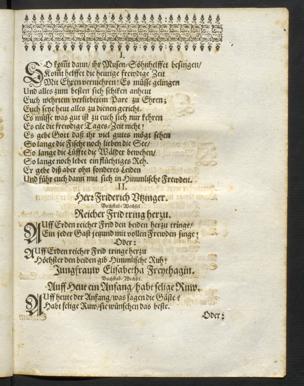 I.
SO komt dann/ ihr Musen-Söhn helffet besingen/
Komt helffet die heutige frewdige Zeit
Mit Ehren vermehren: Es müsse gelingen
Und alles zum besten sich schicken anheut
Euch wehrtem verliebetem Pare zu Ehren;
Euch seye heut alles zu dienen gericht.
Es müsse was gut ist zu euch sich nur kehren
Es eile die frewdige Tages-Zeit nicht:
Es gebe Gott daß ihr viel gutes mögt sehen
So lange die Fische noch lieben die See/
So lange die Lüffte die Wälder bewehen/
So lange noch lebet ein flüchtiges Reh.
Er gebe diß aber ohn sonderes Leiden
Und führ euch dann mit sich in Himmlische Frewden.
II.
Herr Friderich Vtzinger.
Buchstab-Wechsel.
Reicher Frid tring herzu.
AUff Erden reicher Frid den beiden herzu tringe/
Ein jeder Gast jetzund mit vollen Frewden singe:
Oder:
AUff Erden reicher Frid tringe herzu
Höchster den beiden gib Himmlische Ruh;
Jungfrauw Elisabetha Freythagin.
Buchstab-Wechsel.
Auff Heut ein Anfang/ habt selige Ruw.
AUff heute der Anfang/ was sagen die Gäste?
Habt selige Ruw/ sie wünschen das beste.
Oder: